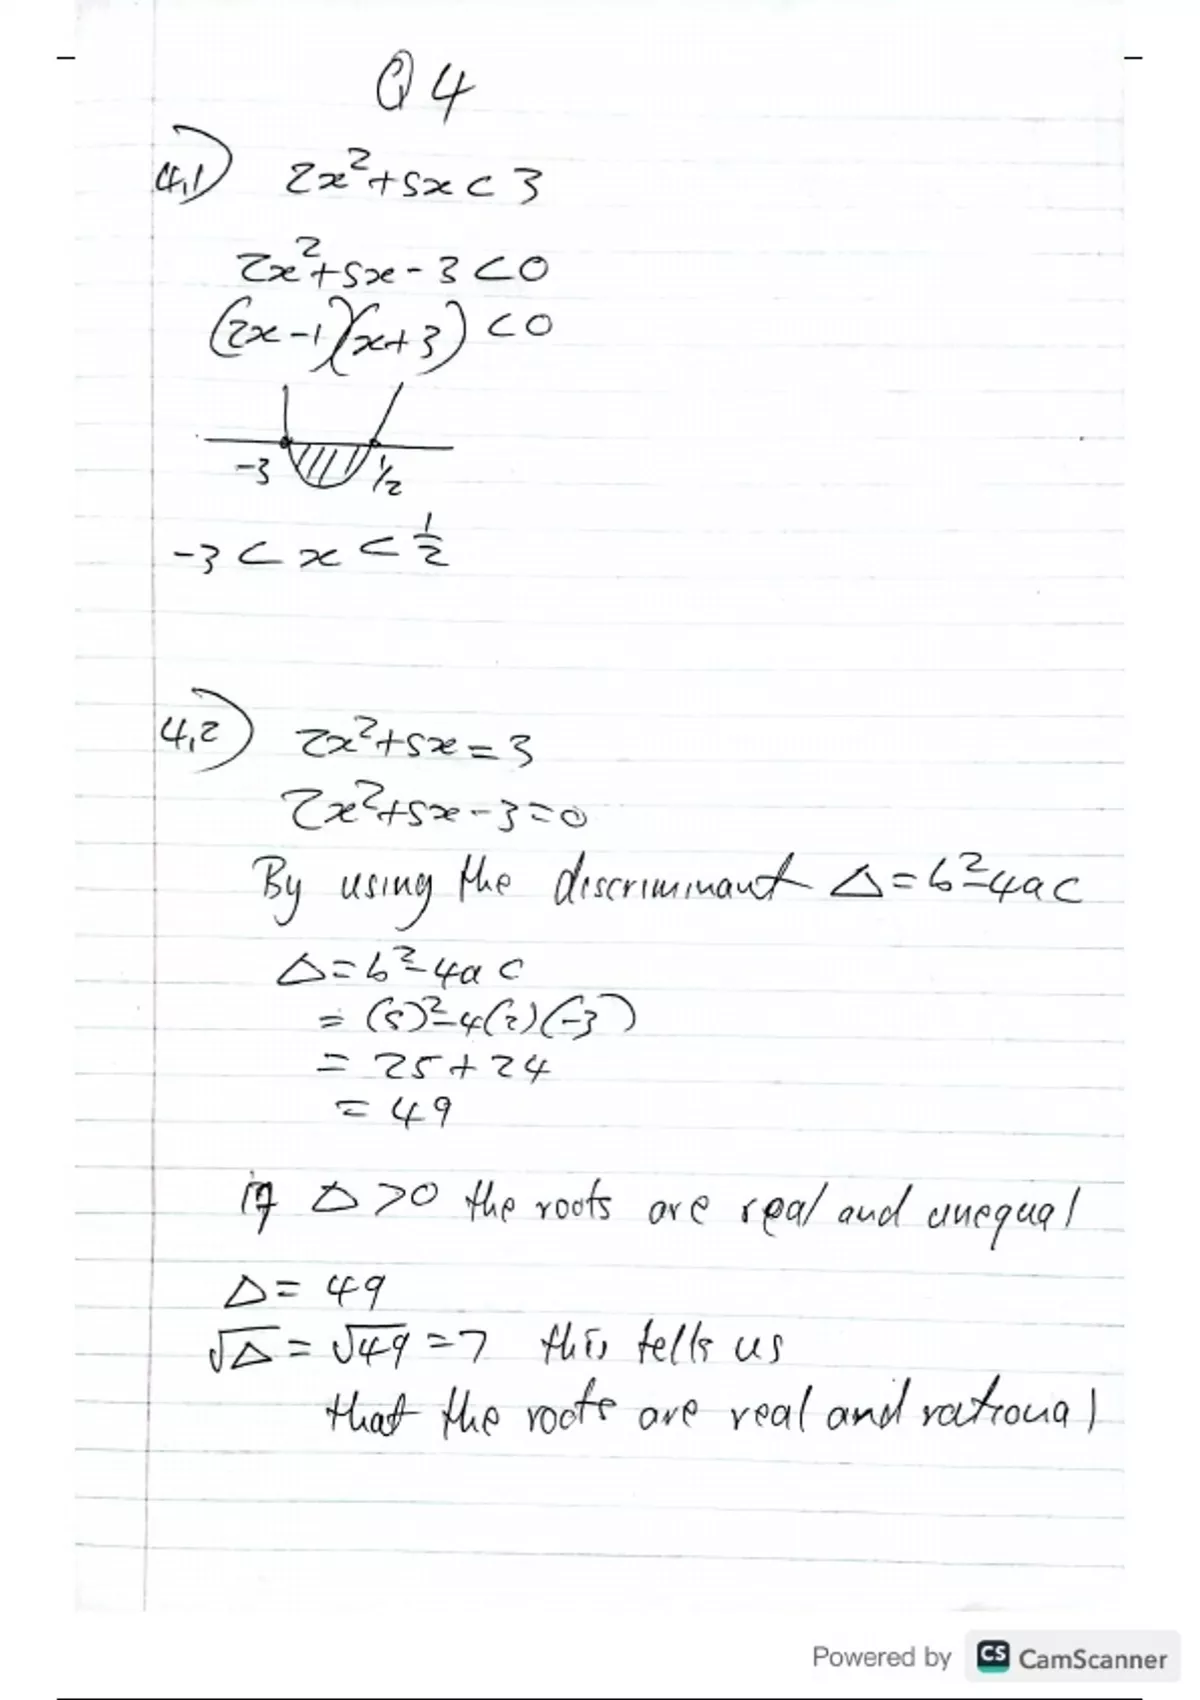 Q 4
4,1) 2x²+5x < 3
2x²+5x-3 < 0
(2x-1)(x+3) < 0
-3 1/2
-3 < x < 1/2
4,2) 2x²+5x=3
2x²+5x-3=0
By using the discriminant Δ=b²-4ac
Δ=b²-4ac
= (5)²-4(2)(-3)
= 25+24
= 49
if Δ>0 the roots are real and unequal
Δ= 49
√Δ = √49 =7 this tells us
that the roots are real and rational
Powered by CS CamScanner